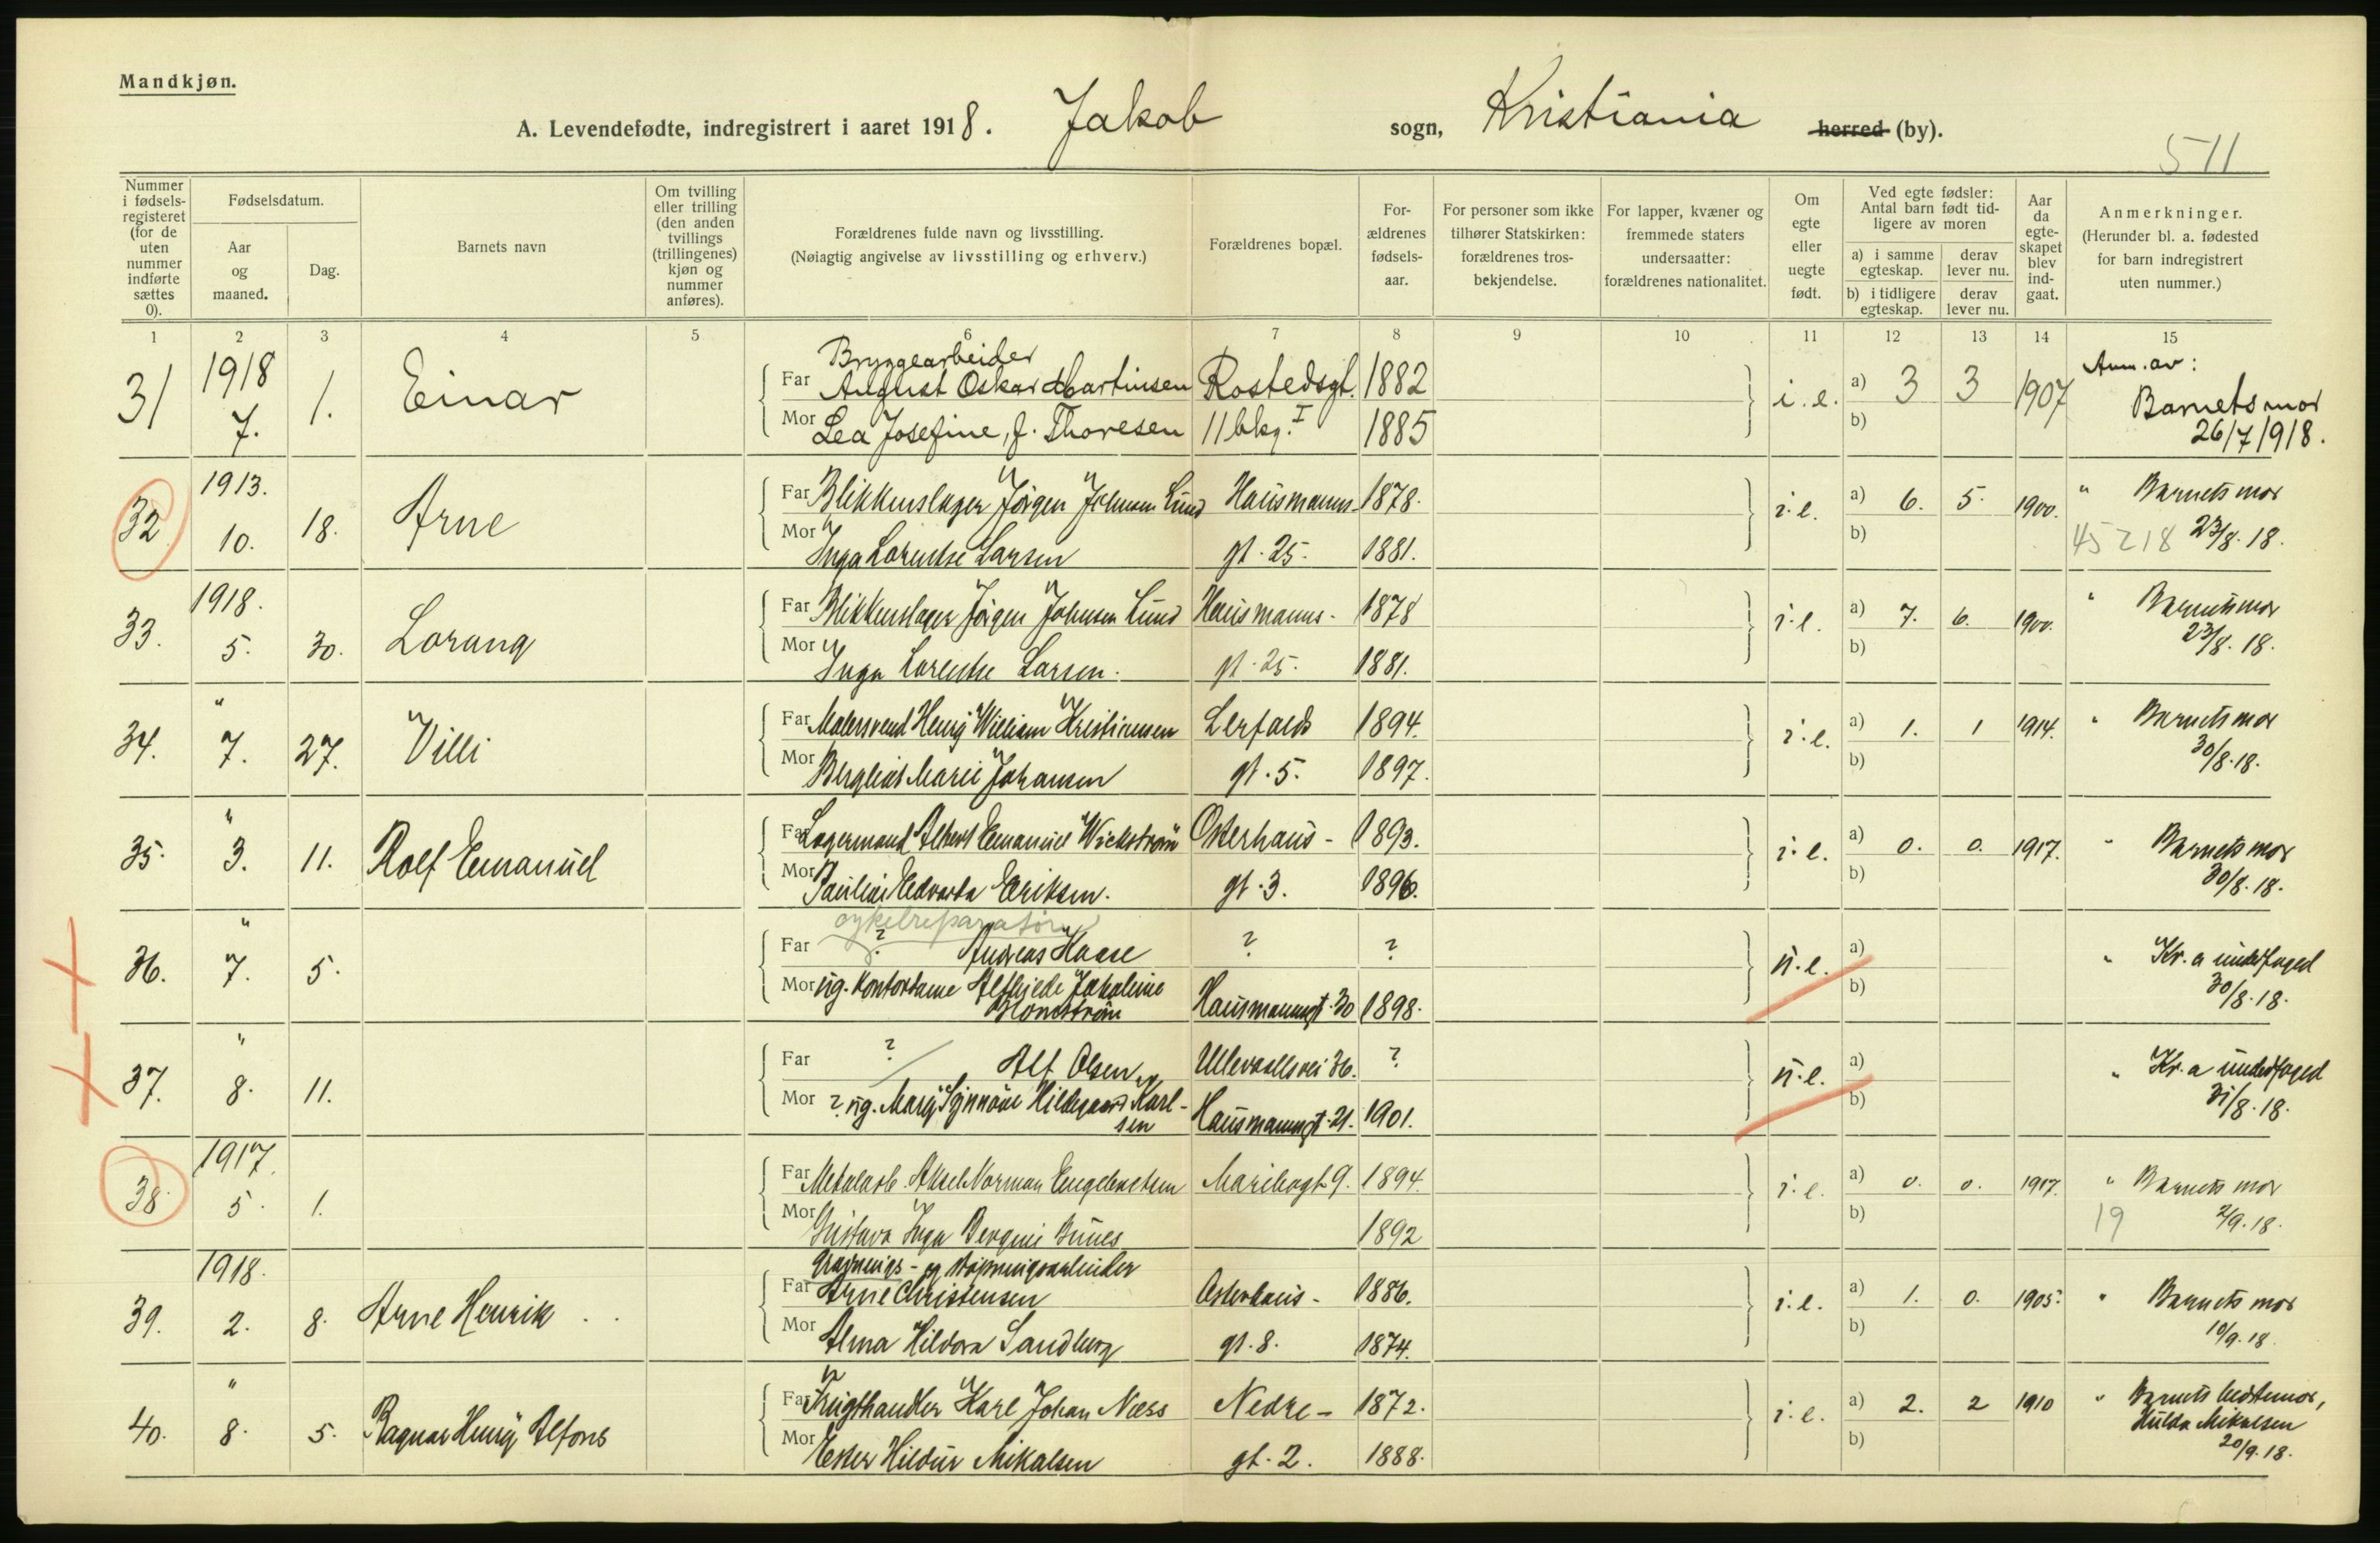 Mandkjøn.
A. Levendefødte, indregistrert i aaret 1918. Jakob sogn, Kristiania herred (by).
511
Nummer i fødsels-registeret (for de uten nummer indførte sættes 0).
Fødselsdatum.
Aar og maaned.
Dag.
Barnets navn
Om tvilling eller trilling (den anden tvillings (trillingenes) kjøn og nummer anføres).
Forældrenes fulde navn og livsstilling.
(Nøiagtig angivelse av livsstilling og erhverv.)
Forældrenes bopæl.
For-ældrenes fødsels-aar.
For personer som ikke tilhører Statskirken: forældrenes tros-bekjendelse.
For lapper, kvæner og fremmede staters undersaatter: forældrenes nationalitet.
Om egte eller uegte født.
Ved egte fødsler: Antal barn født tid-ligere av moren
a) i samme egteskap.
derav lever nu.
b) i tidligere egteskap.
derav lever nu.
Aar da egte-skapet blev ind-gaat.
Anmerkninger.
(Herunder bl. a. fødested for barn indregistrert uten nummer.)
1 2 3 4 5 6 7 8 9 10 11 12 13 14 15
31 1918 7. 1. Einar
Bryggearbeider
Far August Oskar Martinsen Rostedsgt. 1882
Mor Lea Josefine, f. Thoresen 11 bkg. I 1885
i. e. a) 3 3 1907
b)
Anm. av:
Barnets mor
26/7 1918.
32 1913. 10. 18. Arne
Far Blikkenslager Jörgen Johnsen Lund Hausmanns- 1878.
Mor Inga Lorentse Larsen gt. 25. 1881.
i. e. a) 6. 5. 1900.
b)
" Barnets mor
45218 23/8. 18.
33. 1918. 5. 30. Lorang
Far Blikkenslager Jörgen Johnsen Lund Hausmanns- 1878
Mor Inga Lorentse Larsen. gt. 25. 1881.
i. e. a) 7. 6. 1900.
b)
" Barnets mor
23/8. 18.
34. " 7. 27. Villi
Far Malersvend Henry William Kristiansen Lerfalds 1894.
Mor Bergliot Marie Johansen gt. 5. 1897.
i. e. a) 1. 1 1914.
b)
" Barnets mor
30/8. 18.
35. " 3. 11. Rolf Emanuel
Far Lagermand Albert Emanuel Wickström Osterhaus- 1893.
Mor Pauline Edvarda Eriksen. gt. 3. 1896.
i. e. a) 0. 0. 1917.
b)
" Barnets mor
30/8. 18.
36. " 7. 5.
cykelreparatör
Far ? Andreas Haase ? ?
Mor ug. Kontordame Alfhjede Jakoline
Blomström Hausmannsgt. 30 1898.
u. e. a)
b)
" Kr.a underfoged
30/8. 18.
37. " 8. 11.
Far ? Alf Olsen Ullevaalsvei 36. ?
Mor ? ug. Mary Synnöve Hildegaard Karl-
sen Hausmannsgt. 21. 1901.
u. e. a)
b)
" Kr.a underfoged
31/8. 18.
38 1917. 5. 1.
Far Metalarb. Aksel Norman Engebretsen Maribogt. 9. 1894.
Mor Gustava Inga Bergine Bunes 1892
i. e. a) 0. 0. 1917.
b)
" Barnets mor
19 2/9. 18.
39. 1918. 2. 8. Arne Henrik
Gravnings- og stöpningsarbeider
Far Arne Christensen Osterhaus- 1886.
Mor Alma Hildora Sandberg gt. 8. 1874.
i. e. a) 1. 0. 1905.
b)
" Barnets mor
10/9. 18.
40. " 8. 5. Ragnar Henry Alfons
Far Frugthandler Karl Johan Næss Nedre- 1872.
Mor Ester Hildur Mikalsen gt. 2. 1888.
i. e. a) 2. 2 1910
b)
" Barnets bedstemor,
Hulda Mikalsen
20/9. 18.